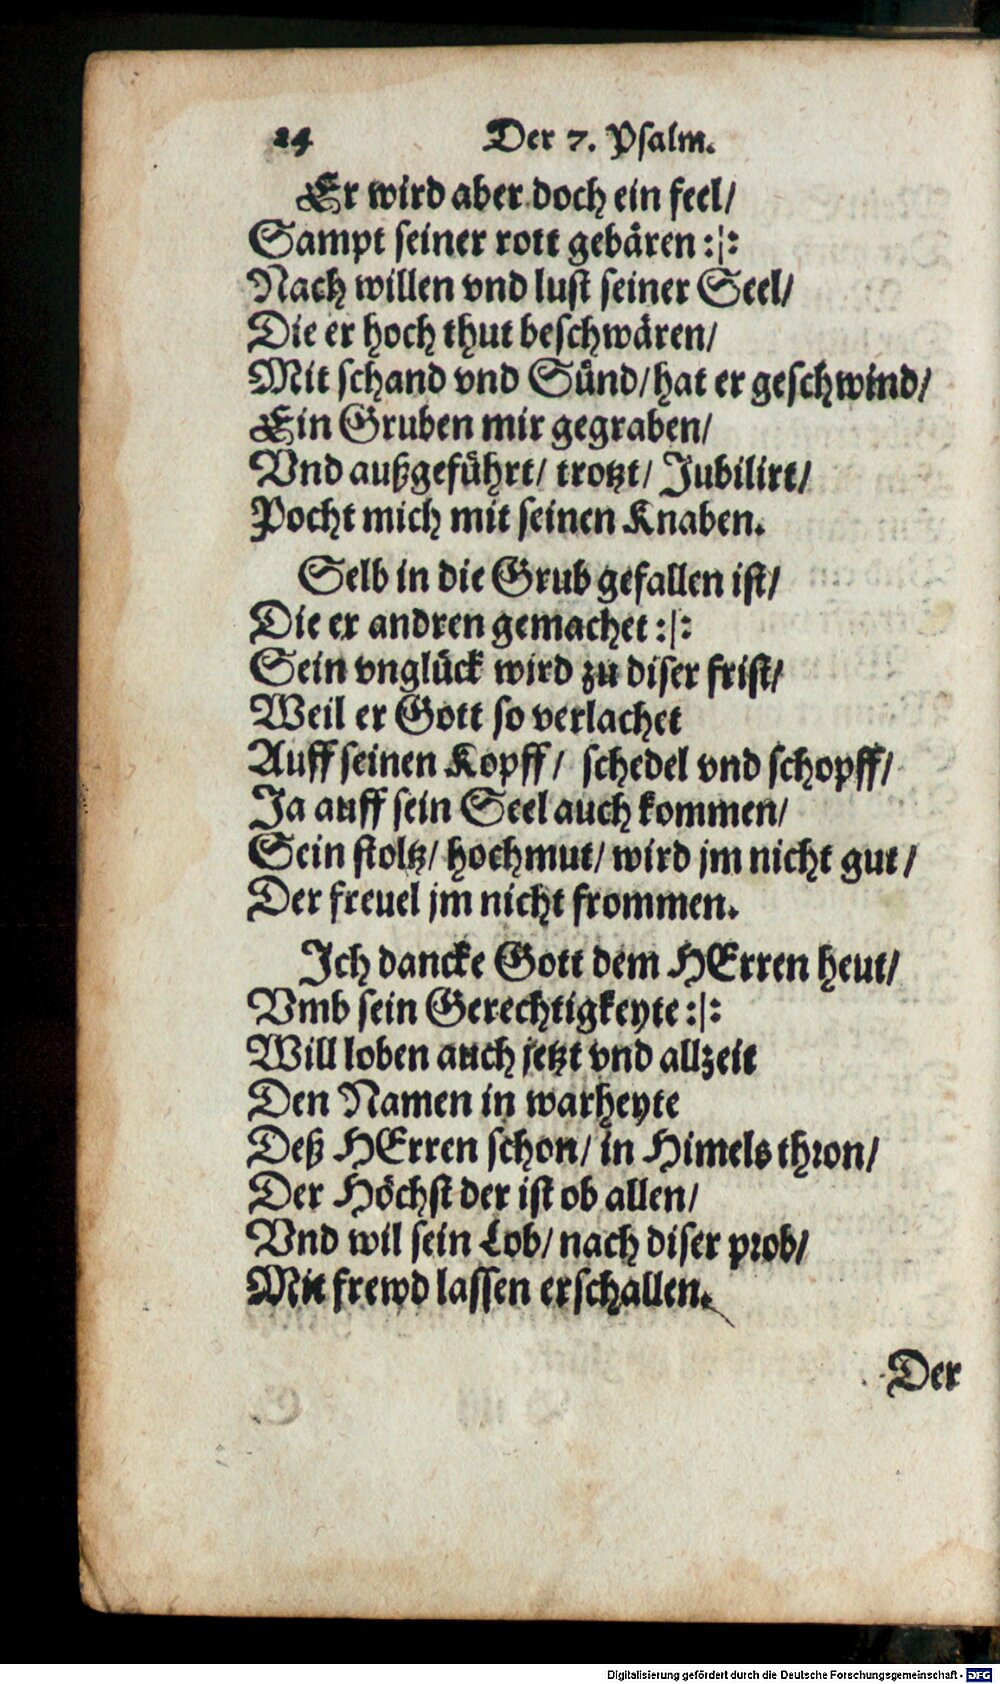 24 Der 7. Psalm.
Er wird aber doch ein feel/
Sampt seiner rott gebären :|:
Nach willen vnd lust seiner Seel/
Die er hoch thut beschwären/
Mit schand vnd Sünd/ hat er geschwind/
Ein Gruben mir gegraben/
Vnd außgeführt/ trotzt/ Jubilirt/
Pocht mich mit seinen Knaben.
Selb in die Grub gefallen ist/
Die er andren gemachet :|:
Sein vnglück wird zu diser frist/
Weil er Gott so verlachet
Auff seinen Kopff/ schedel vnd schopff/
Ja auff sein Seel auch kommen/
Sein stoltz/ hochmut/ wird jm nicht gut/
Der freuel jm nicht frommen.
Ich dancke Gott dem HErren heut/
Vmb sein Gerechtigkeyte :|:
Will loben auch jetzt vnd allzeit
Den Namen in warheyte
Deß HErren schon/ in Himels thron/
Der Höchst der ist ob allen/
Vnd wil sein Lob/ nach diser prob/
Mit frewd lassen erschallen.
Der
Digitalisierung gefördert durch die Deutsche Forschungsgemeinschaft - DFG